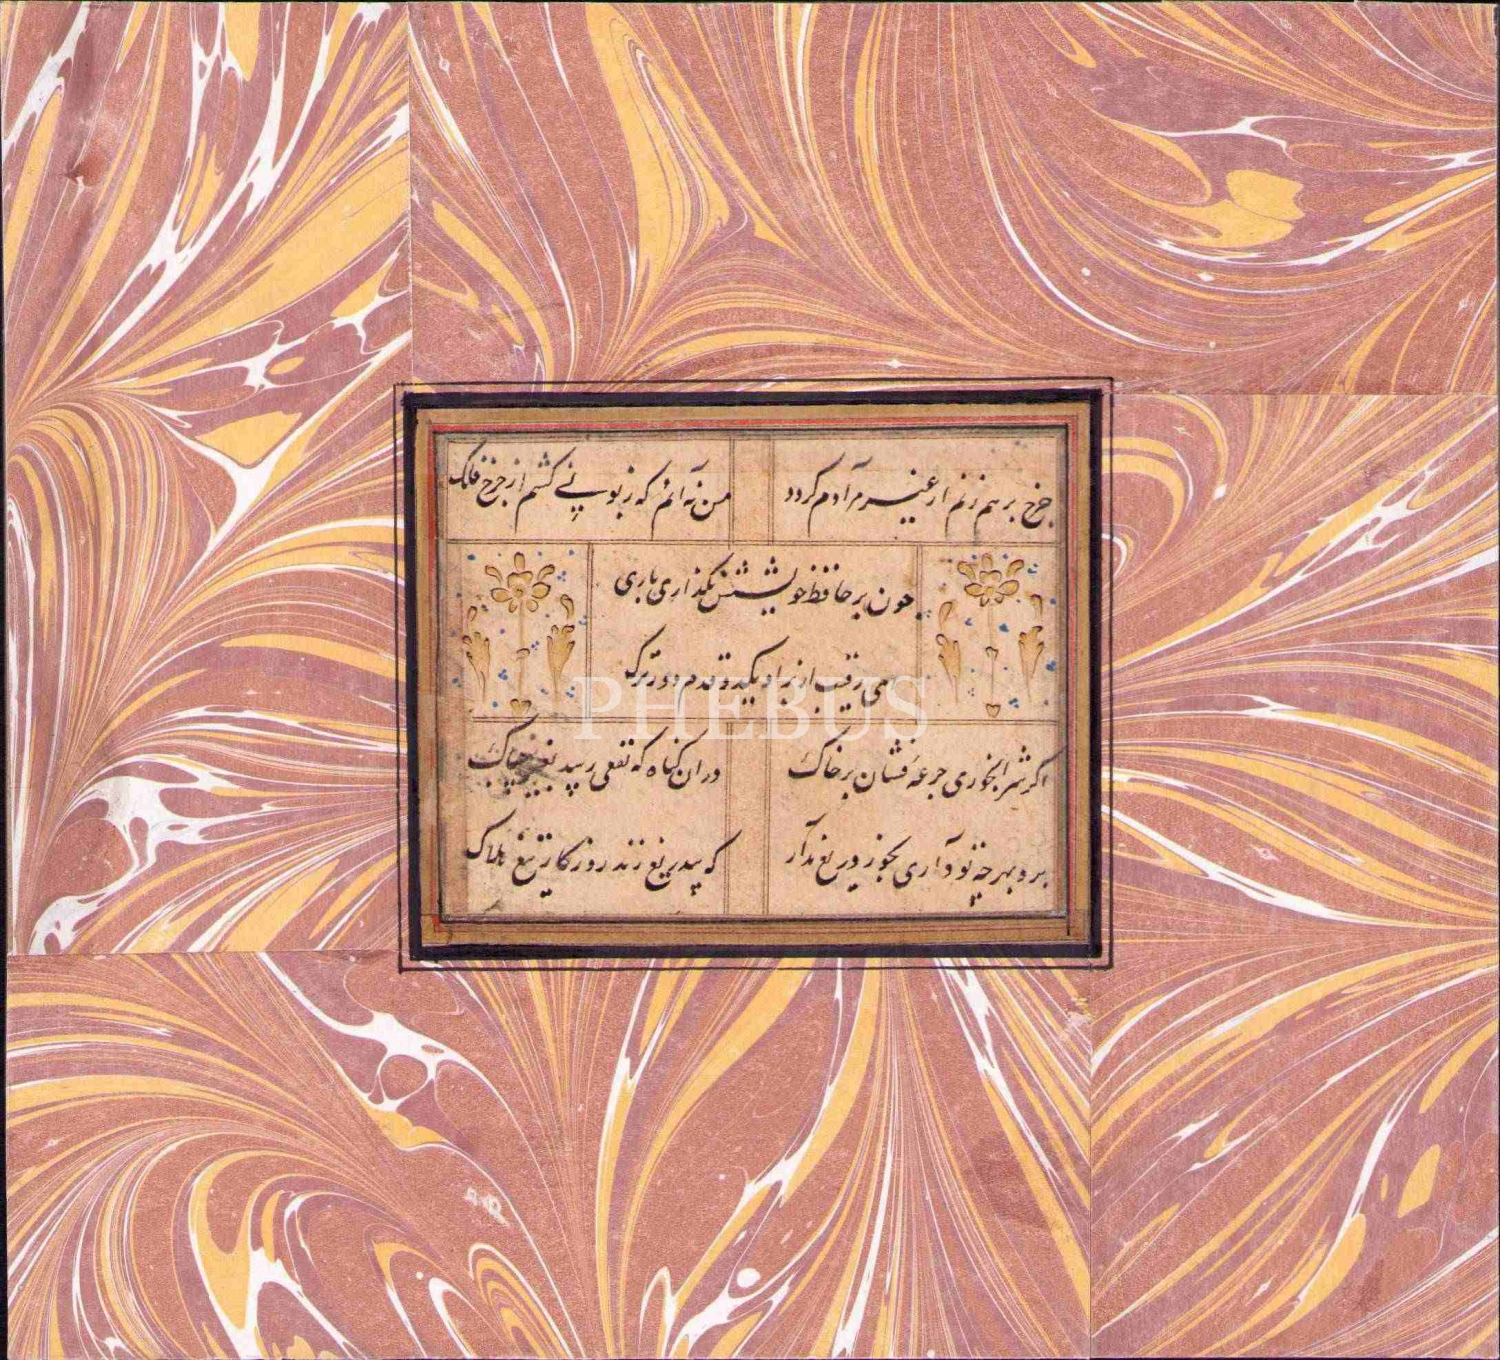 چرخ بر هم زنم ار غیر مرادم گردد من نه آنم که زبونی کشم از چرخ فلک
چون بر حافظ خویشش نگذاری باری
می رقیب از بر او یکدو قدم دورترک
اگر شراب خوری جرعه فشان بر خاک در ان گناه که نفعی رسد بغیر چه باک
برو بهرچه تو داری بخور دریغ مدار که بیدریغ زند روزگار تیغ هلاک
PHEBUS